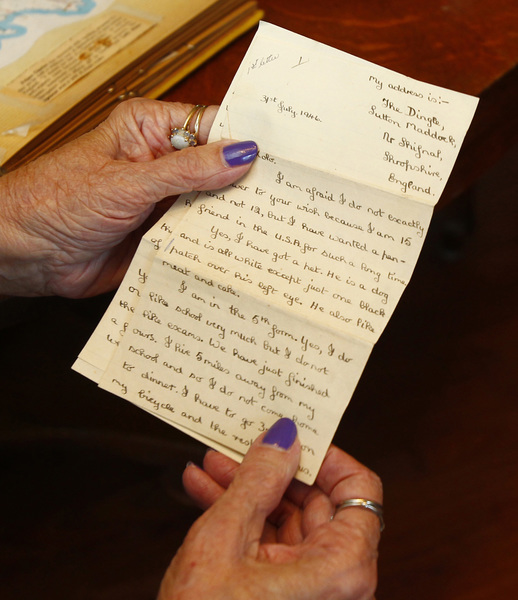 1st letter 1
My address is:-
The Dingle,
31st July 1946.
Sutton Maddock,
Nr Shifnal,
Shropshire,
England.
I am afraid I do not exactly
to your wish because I am 15
and not 13, but I have wanted a pen-
friend in the U.S.A. for such a long time.
Yes, I have got a pet. He is a dog
and is all white except just one black
patch over his left eye. He also like
meat and cake.
I am in the 5th form. Yes, I do
like school very much but I do not
like exams. We have just finished
ours. I live 5 miles away from my
school and so I do not come home
to dinner. I have to go on
my bicycle and the rest